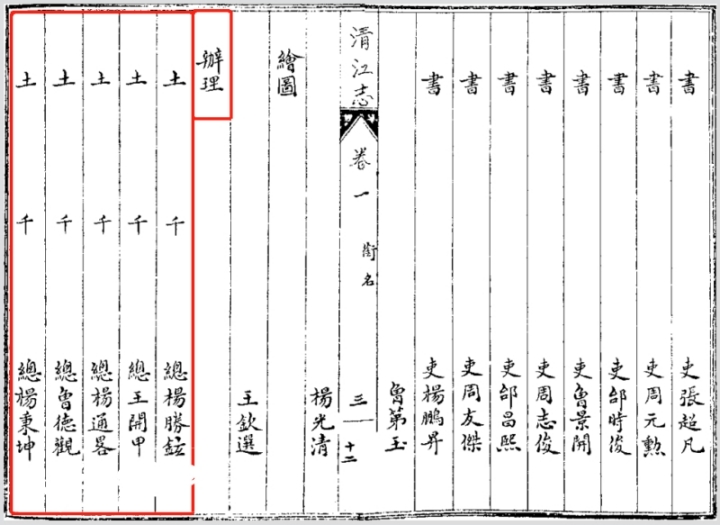 書吏張超凡
書吏周元勲
書吏邰時俊
書吏魯景開
書吏周志俊
書吏邰昌熙
書吏周友傑
書吏楊鵬昇
魯第玉
清江志 卷一 銜名 三 十二
楊光清
繪圖
王欽選
辦理
土千總楊勝鉉
土千總王開甲
土千總楊通畧
土千總魯德觀
土千總楊秉坤